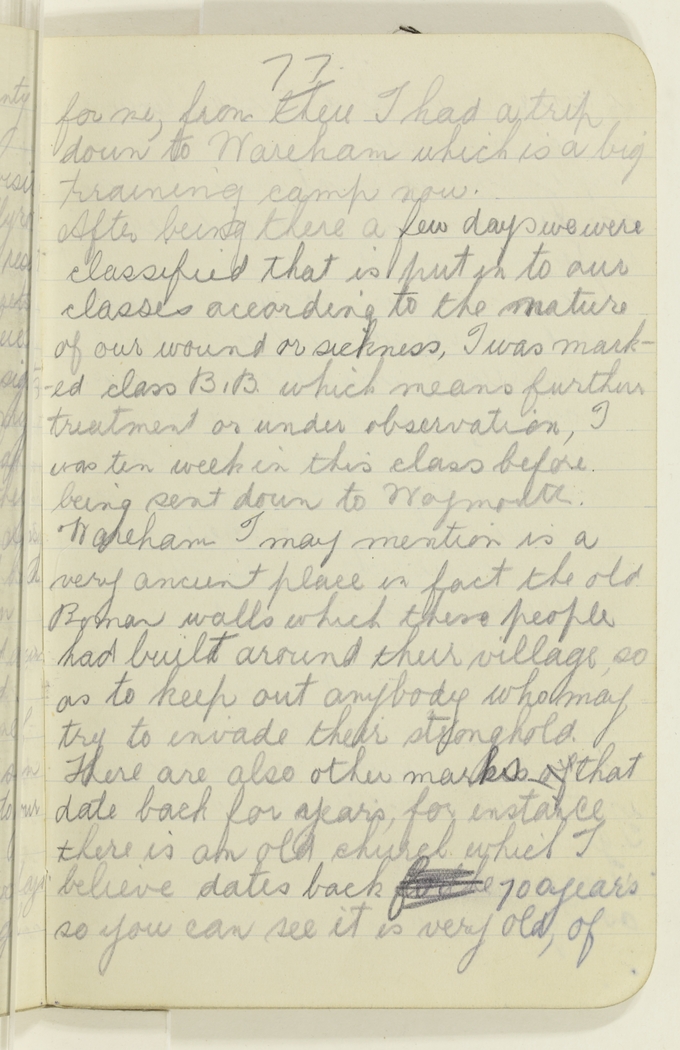 77.
for me, from there I had a trip
down to Wareham which is a big
training camp now.
After being there a few days we were
classified that is put in to our
classes according to the nature
of our wound or sickness, I was mark-
-ed class B.1.B. which means further
treatment or under observation, I
was ten week in this class before.
being sent down to Waymouth.
Wareham I may mention is a
very ancient place in fact the old
Roman walls which these people
had built around their village, so
as to keep out anybody who may
try to invade their stronghold.
There are also other marks that
date back for years, for instance
there is an old church which I
believe dates back 700 years
so you can see it is very old, of